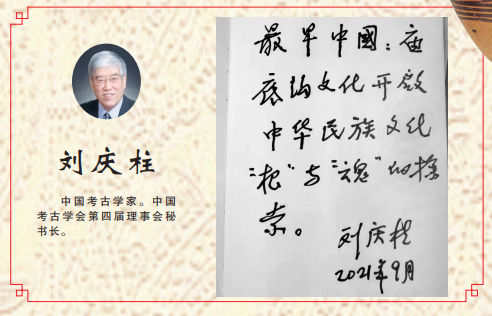 刘庆柱
中国考古学家。中国
考古学会第四届理事会秘
书长。
最早中國：庙
底沟文化开啟
中华民族文化
“根”与“魂”的探
索。
刘庆柱
2021年9月